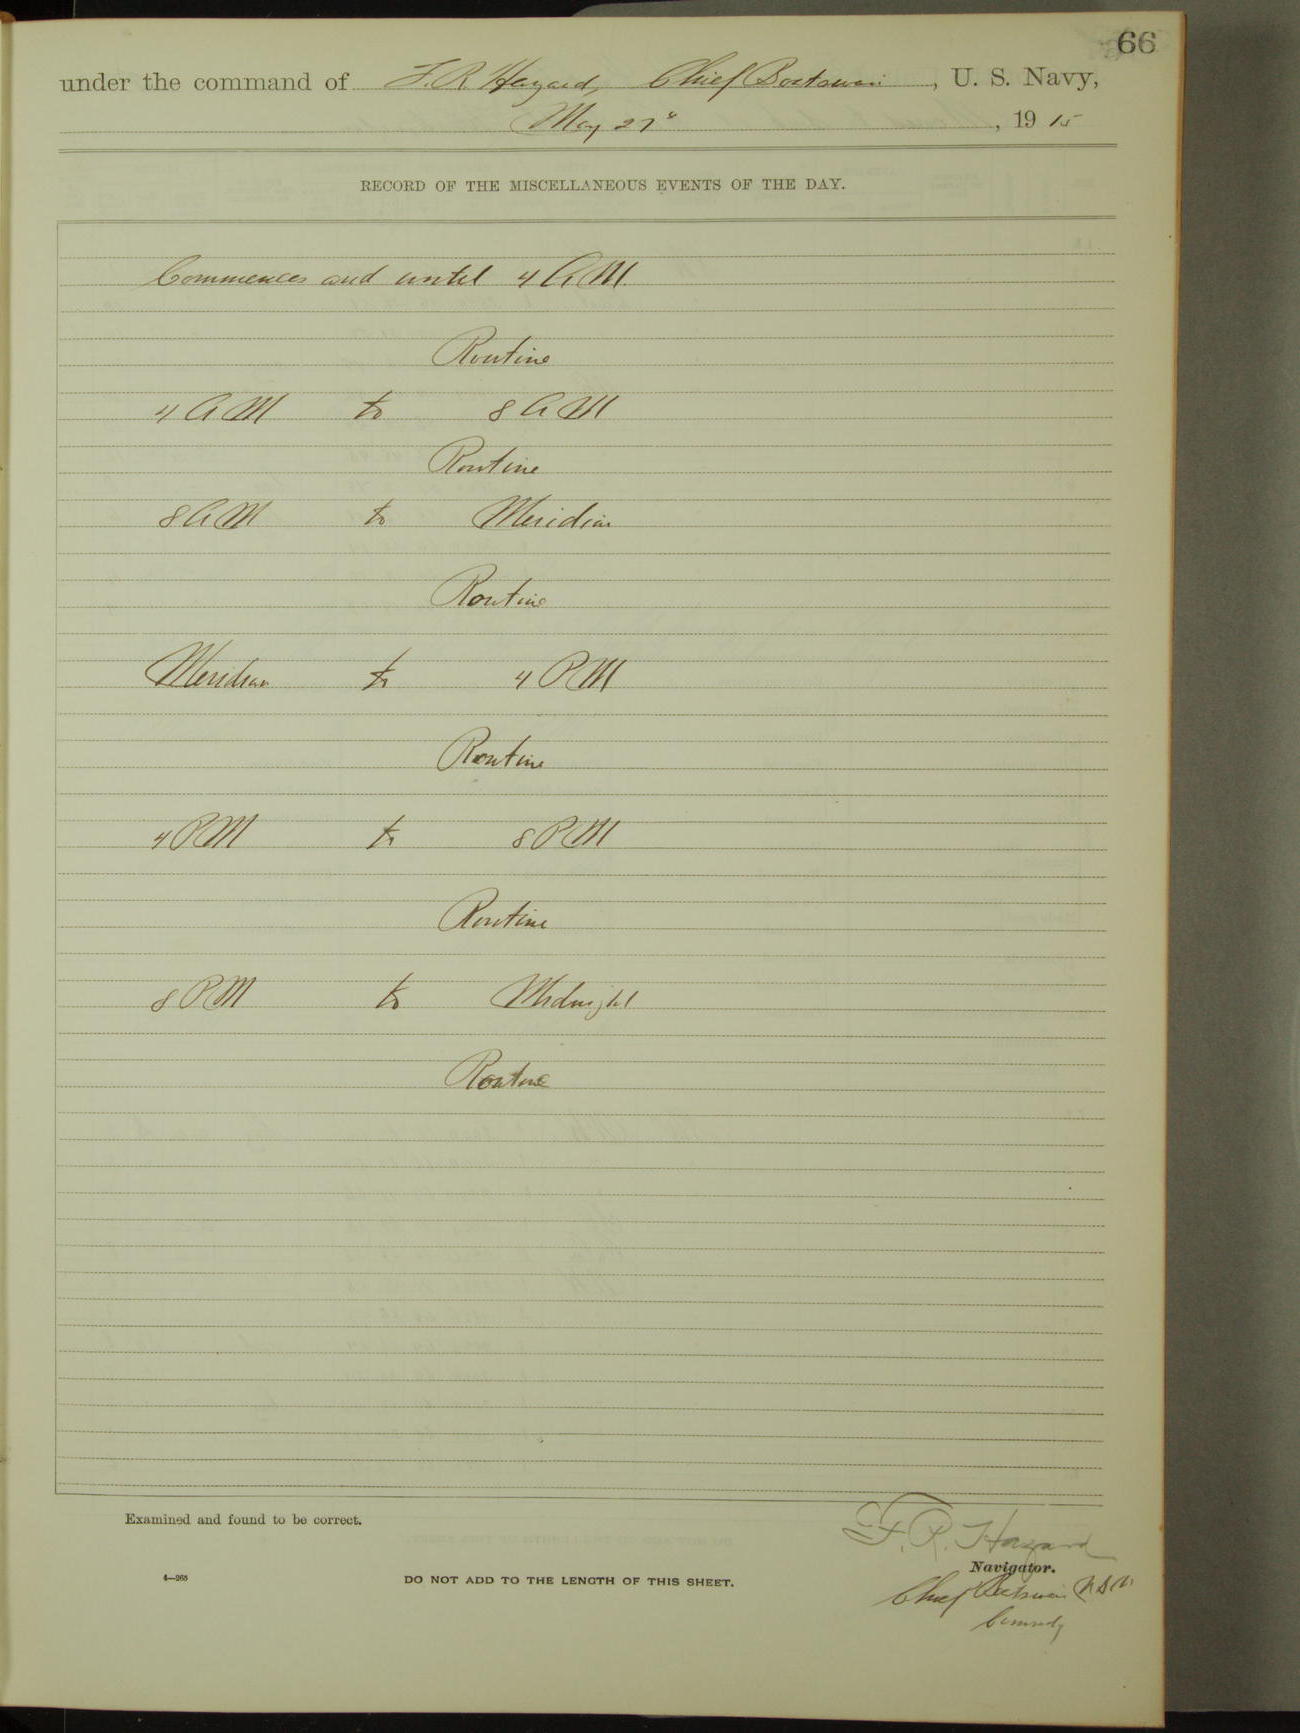 66
under the command of F. R. Hazard, Chief Boatswain, U. S. Navy,
May 27", 1915
RECORD OF THE MISCELLANEOUS EVENTS OF THE DAY.
Commences and until 4 AM.
Routine
4 AM to 8 AM
Routine
8 AM to Meridian
Routine
Meridian to 4 PM
Routine
4 PM to 8 PM
Routine
8 PM to Midnight
Routine
Examined and found to be correct.
F. R. Hazard
Navigator.
4—265
DO NOT ADD TO THE LENGTH OF THIS SHEET.
Chief Boatswain U S N
Commdg